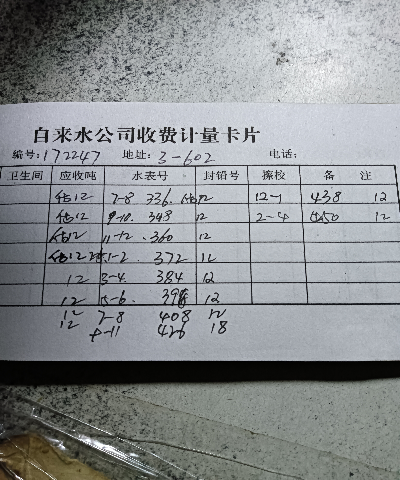 自来水公司收费计量卡片
编号:172247 地址:3-602 电话:
卫生间 应收吨 水表号 封铅号 擦校 备 注
估12 7-8 336 12 12-1 438 12
估12 9-10 348 12 2-4 450 12
估12 11-12 360 12
估12 1-2 372 12
12 3-4 384 12
12 5-6 396 12
12 7-8 408 12
12 9-11 426 18